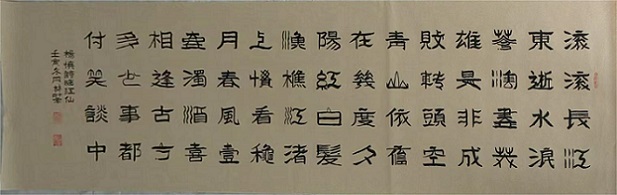 滚滚長江
東逝水浪
花淘盡英
雄是非成
敗轉頭空
青山依舊
在幾度夕
陽紅白髮
漁樵江渚
上慣看穐
月春風壹
壺濁酒喜
相逢古今
多少事都
付笑談中
楊慎詞臨江仙